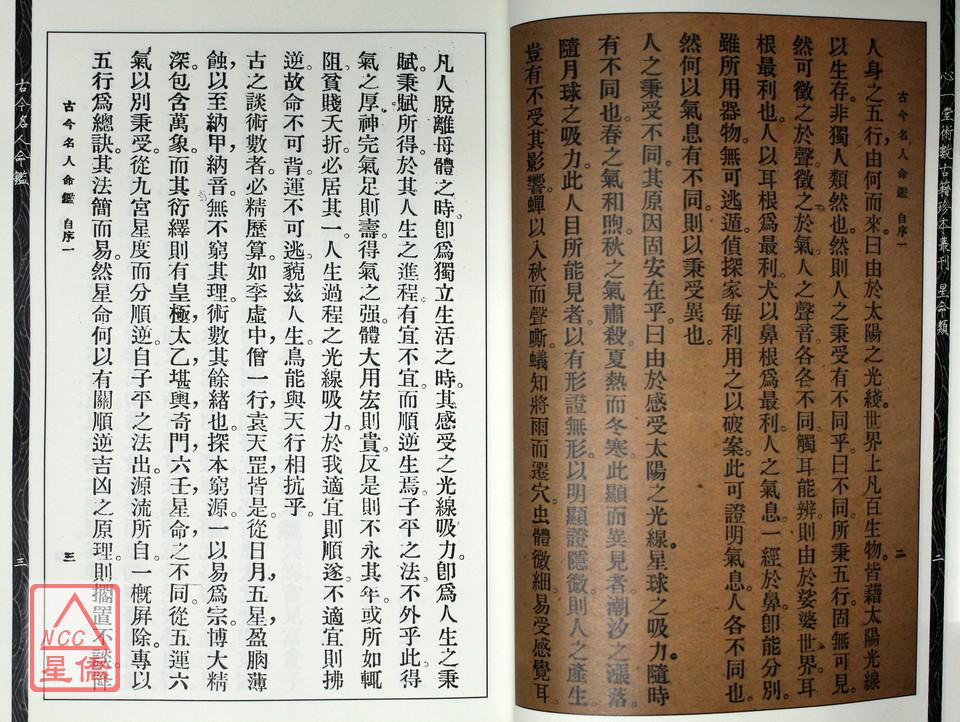 心一堂術數古籍珍本叢刊 星命類
二
古今名人命鑑 自序一
二
人身之五行，由何而來。曰由於太陽之光綫。世界上凡百生物。皆藉太陽光線
以生存。非獨人類然也。然則人之秉受有不同乎。曰不同。所秉五行。固無可見。
然可徵之於聲。徵之於氣。人之聲音。各各不同。觸耳能辨。則由於娑婆世界。耳
根最利也。人以耳根爲最利。犬以鼻根爲最利。人之氣息。一經於鼻。卽能分別。
雖所用器物。無可逃遁。偵探家每利用之以破案。此可證明氣息。人各不同也。
然何以氣息有不同。則以秉受異也。
人之秉受不同。其原因固安在乎。曰由於感受太陽之光線。星球之吸力。隨時
有不同也。春之氣和煦。秋之氣肅殺。夏熱而冬寒。此顯而異見者。潮汐之漲落。
隨月球之吸力。此人目所能見者。以有形證無形。以明顯證隱微。則人之產生。
豈有不受其影響。蟬以入秋而聲嘶。蟻知將雨而遷穴。虫體微細。易受感覺耳。
凡人脫離母體之時。卽爲獨立生活之時。其感受之光線吸力。卽爲人生之秉
賦。秉賦所得。於其人生之進程。有宜不宜。而順逆生焉。子平之法。不外乎此。得
氣之厚。神完氣足則壽。得氣之强。體大用宏則貴。反是則不永其年。或所如輒
阻。貧賤夭折。必居其一。人生過程之光線吸力。於我適宜則順遂。不適宜則拂
逆。故命不可背。運不可逃。藐茲人生。烏能與天行相抗乎。
古之談術數者。必精歷算。如李虛中，僧一行，袁天罡皆是。從日月，五星，盈朒，薄
蝕，以至納甲，納音。無不窮其理。術數其餘緒也。探本窮源。一以易爲宗。博大精
深。包含萬象。而其衍繹。則有皇極，太乙，堪輿，奇門，六壬，星命，之不同。從五運六
氣。以別秉受。從九宮星度。而分順逆。自子平之法出。源流所自。一概屏除。專以
五行爲總訣。其法簡而易。然星命何以有關順逆吉凶之原理。則擱置不談。降
古今名人命鑑 自序一
三
古今名人命鑑
三
NCC
星僑